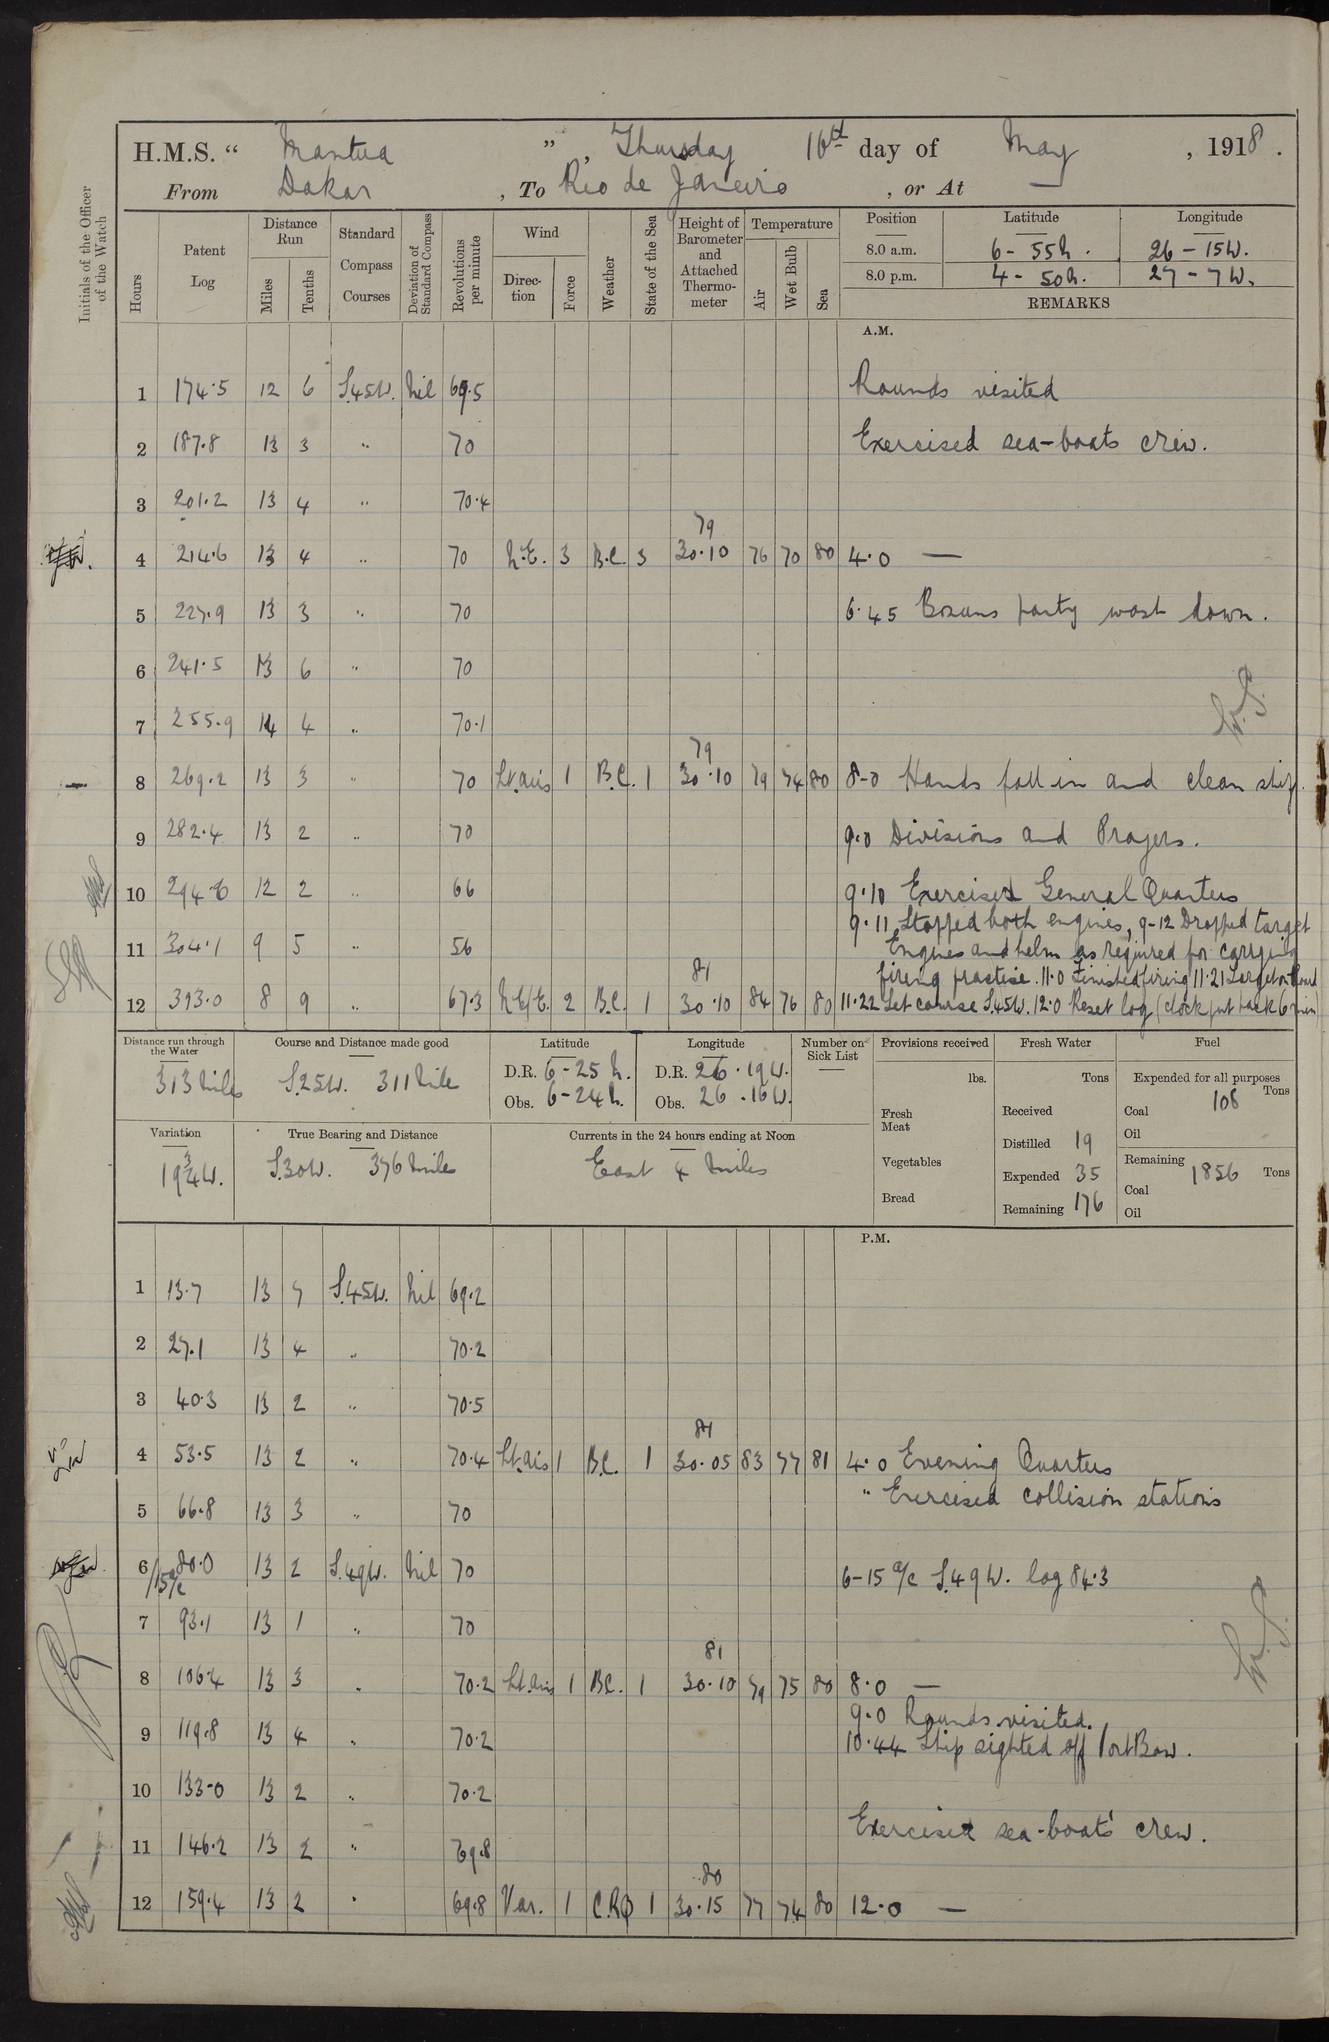 H.M.S. “ Mantua ”, Thursday 16th day of May, 1918.
From Dakar, To Rio de Janeiro, or At —
Initials of the Officer of the Watch
Hours
Patent Log
Distance Run
Miles Tenths
Standard Compass Courses
Deviation of Standard Compass
Revolutions per minute
Wind
Direction Force
Weather
State of the Sea
Height of Barometer and Attached Thermometer
Temperature
Air Wet Bulb Sea
Position Latitude Longitude
8.0 a.m. 6-55N. 26-15W.
8.0 p.m. 4-50N. 27-7W.
REMARKS
A.M.
1 174.5 12 6 S.45W. Nil 69.5 Rounds visited
2 187.8 13 3 " 70 Exercised sea-boats crew.
3 201.2 13 4 " 70.4
79
4 214.6 13 4 " 70 N.E. 3 B.C. 3 30.10 76 70 80 4.0 —
5 227.9 13 3 " 70 6.45 Bosuns party wash down.
6 241.5 13 6 " 70
7 255.9 14 4 " 70.1
79
8 269.2 13 3 " 70 Lt.airs 1 B.C. 1 30.10 79 74 80 8-0 Hands fall in and clean ship.
9 282.4 13 2 " 70 9.0 Divisions and Prayers.
10 294.6 12 2 " 66 9.10 Exercised General Quarters
9.11 Stopped both engines, 9-12 Dropped target
11 304.1 9 5 " 56 Engines and helm as required for carrying
81
firing practise. 11.0 Finished firing 11.21 Target on board
12 313.0 8 9 " 67.3 NE/E. 2 B.C. 1 30.10 84 76 80 11.22 Set course S.45W. 12.0 Reset log (clock put back 6 min)
Distance run through the Water
313 Miles
Course and Distance made good
S.25W. 311 Mile
Latitude
D.R. 6-25 N.
Obs. 6-24N.
Longitude
D.R. 26.19W.
Obs. 26.16W.
Number on Sick List
—
Provisions received
lbs.
Fresh Meat
Vegetables
Bread
Fresh Water
Tons
Received
Distilled 19
Expended 35
Remaining 176
Fuel
Expended for all purposes
Tons
Coal 108
Oil
Remaining
Coal 1856 Tons
Oil
Variation
19¾W.
True Bearing and Distance
S.30W. 376 Miles
Currents in the 24 hours ending at Noon
East 4 Miles
P.M.
1 13.7 13 7 S.45W. Nil 69.2
2 27.1 13 4 " 70.2
3 40.3 13 2 " 70.5
84
4 53.5 13 2 " 70.4 Lt.airs 1 B.C. 1 30.05 83 77 81 4.0 Evening Quarters
" Exercised collision stations
5 66.8 13 3 " 70
6 80.0 13 2 S.49W. Nil 70 6-15 a/c S.49W. log 84.3
/15 a/c
7 93.1 13 1 " 70
81
8 106.4 13 3 " 70.2 Lt.airs 1 B.C. 1 30.10 79 75 80 8.0 —
9.0 Rounds visited.
9 119.8 13 4 " 70.2 10.44 Ship sighted off Port Bow.
10 133-0 13 2 " 70.2
Exercised sea-boats' crew.
11 146.2 13 2 " 69.8
80
12 159.4 13 2 " 69.8 Var. 1 1 30.15 77 74 80 12.0 —